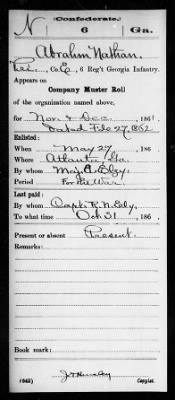 N Confederate. Ga.
6
Abraham Nathan
Co. E, 6 Reg't Georgia Infantry.
Appears on
Company Muster Roll
of the organization named above,
for Nov & Dec, 1861
Dated Feb 27, 1862
Enlisted:
When May 27, 186
Where Atlanta, Ga.
By whom Maj.
Period For the War
Last paid:
By whom Capt. R. N.
To what time Oct 31, 186
Present or absent Present.
Remarks:
Book mark:
(642) Copyist.